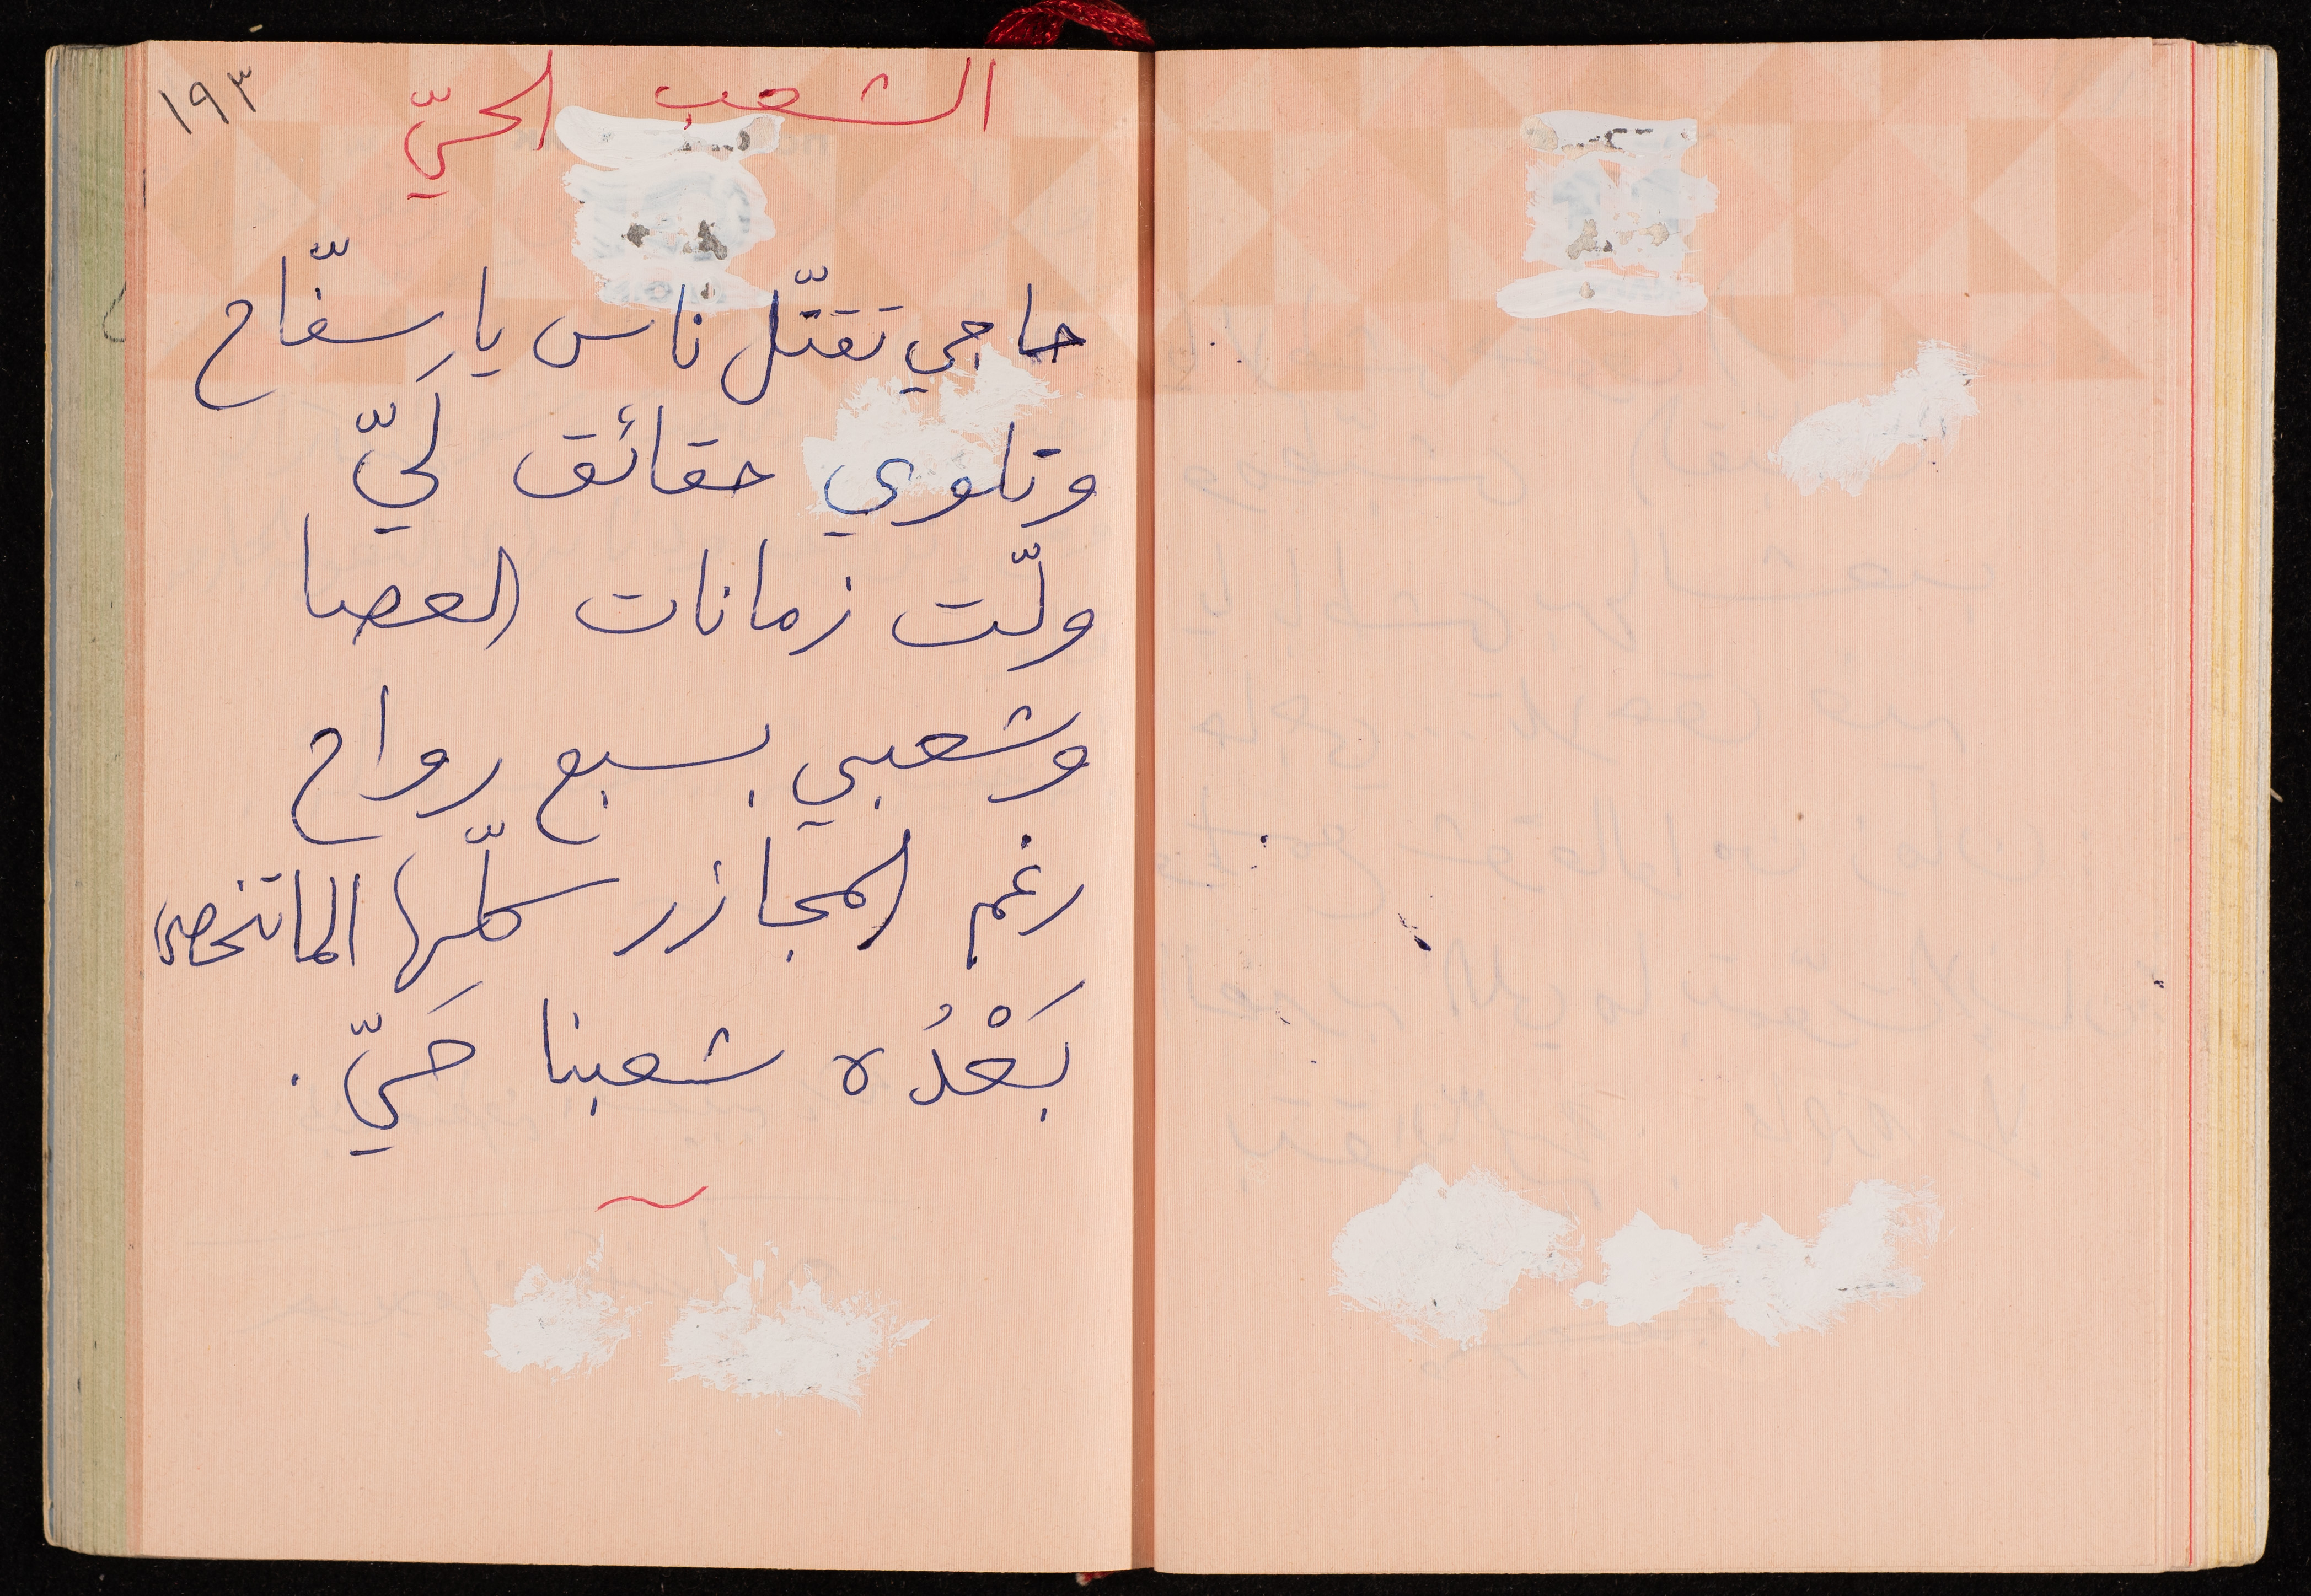 ١٩٣
الشعب الحيّ
حاجي تقتّل ناس يا سفّاح
وتلوي حقائق لَيّ
ولّت زمانات العصا
وشعبي بسبع رواح
رغم المجازر كلّها الماتنحصى
بَعْدُه شعبنا حَيّ .